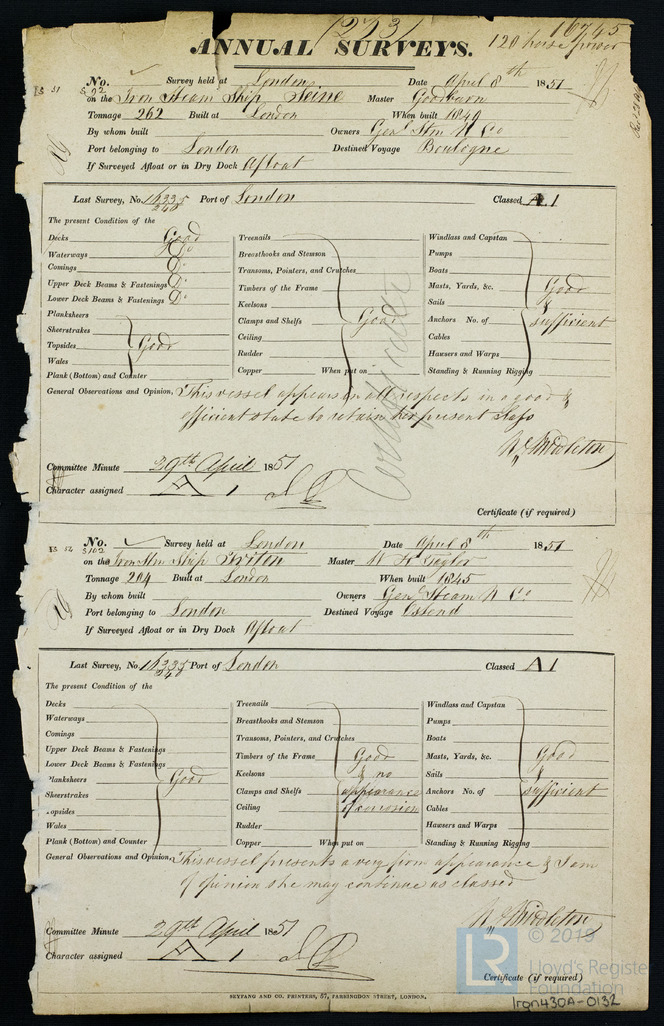 (273) 16745
ANNUAL SURVEYS. 120 horse power
No. 5102 Survey held at London Date April 8th 1851
on the Iron Steam Ship Seine Master Goodburn
Tonnage 262 Built at London When built 1849
By whom built Owners Genl Stm N Co
Port belonging to London Destined Voyage Boulogne
If Surveyed Afloat or in Dry Dock Afloat
Last Survey, No. 16335 Port of London Classed A1
The present Condition of the
Decks Good
Waterways Do
Comings Do
Upper Deck Beams & Fastenings Do
Lower Deck Beams & Fastenings Do
Planksheers
Sheerstrakes
Topsides Good
Wales
Plank (Bottom) and Counter
Treenails
Breasthooks and Stemson
Transoms, Pointers, and Crutches
Timbers of the Frame
Keelsons
Clamps and Shelfs Good
Ceiling
Rudder
Copper When put on
Windlass and Capstan
Pumps
Boats
Masts, Yards, &c. Good
Sails &
Anchors No. of sufficient
Cables
Hawsers and Warps
Standing & Running Rigging
General Observations and Opinion, This vessel appears in all respects in a good &
efficient state to retain her present Class
W Middleton
Committee Minute 29th April 1851
Character assigned A 1
Certificate (if required)
No. 5102 Survey held at London Date April 8th 1851
on the Iron Stm Ship Triton Master W H Taylor
Tonnage 204 Built at London When built 1845
By whom built Owners Genl Steam N Co
Port belonging to London Destined Voyage Ostend
If Surveyed Afloat or in Dry Dock Afloat
Last Survey, No 16335 Port of London Classed A1
The present Condition of the
Decks
Waterways
Comings
Upper Deck Beams & Fastenings
Lower Deck Beams & Fastenings
Planksheers Good
Sheerstrakes
Topsides
Wales
Plank (Bottom) and Counter
Treenails
Breasthooks and Stemson
Transoms, Pointers, and Crutches
Timbers of the Frame Good
Keelsons & no
Clamps and Shelfs appearance
Ceiling of corrosion
Rudder
Copper When put on
Windlass and Capstan
Pumps
Boats
Masts, Yards, &c. Good
Sails &
Anchors No. of sufficient
Cables
Hawsers and Warps
Standing & Running Rigging
General Observations and Opinion, This vessel presents a very firm appearance & I am
of opinion she may continue as classed
W Middleton
Committee Minute 29th April 1851
Character assigned A 1
Certificate (if required)
SEYFANG AND CO. PRINTERS, 57, FARRINGDON STREET, LONDON.
LR © 2019
Lloyd's Register
Foundation
Iron430A-0132